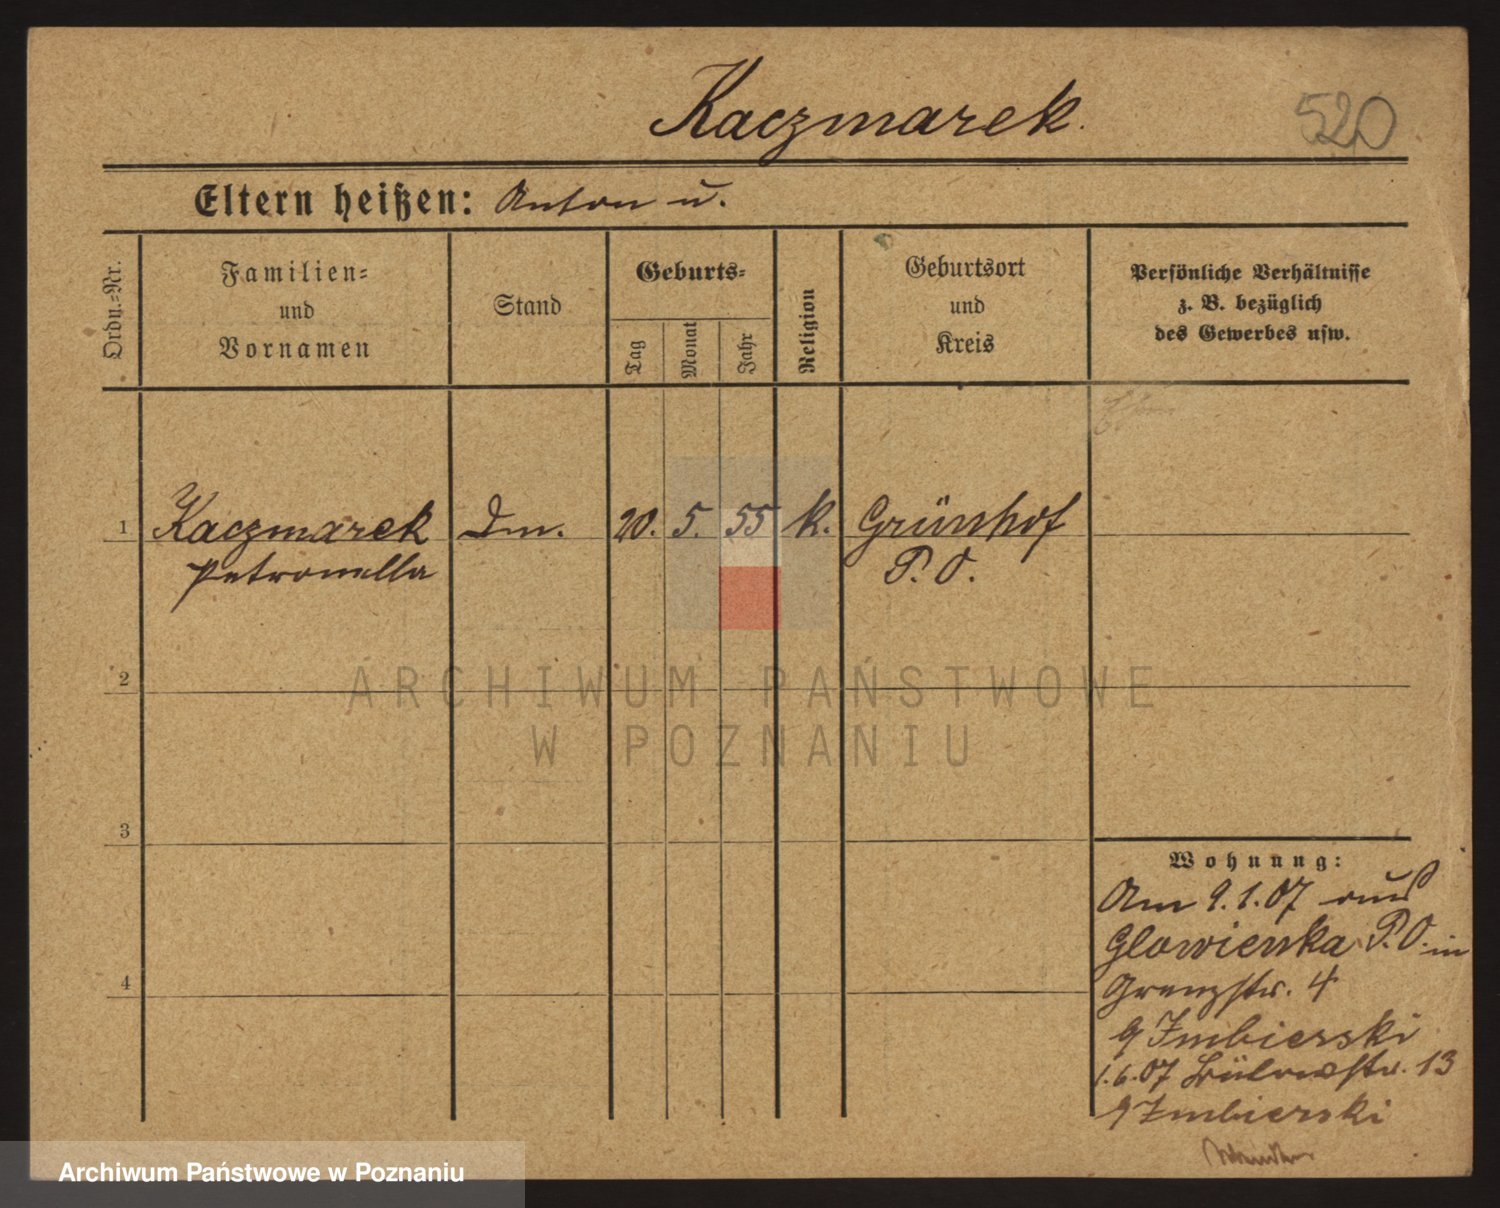 Kaczmarek.
520
Eltern heißen: Anton u.
Ordn.-Nr.
Familien-
und
Vornamen
Stand
Geburts-
Tag
Monat
Jahr
Religion
Geburtsort
und
Kreis
Persönliche Verhältnisse
z. B. bezüglich
des Gewerbes usw.
1 Kaczmarek Dm. 20. 5. 55 k. Grünhof
Petronella P. O.
2
3
4
Wohnung:
Am 9.1.07 aus
Glowienka P.O. in
Grenzstr. 4
Imbierski
1.6.07 Bülowstr. 13
Imbierski
ARCHIWUM PAŃSTWOWE
W POZNANIU
Archiwum Państwowe w Poznaniu